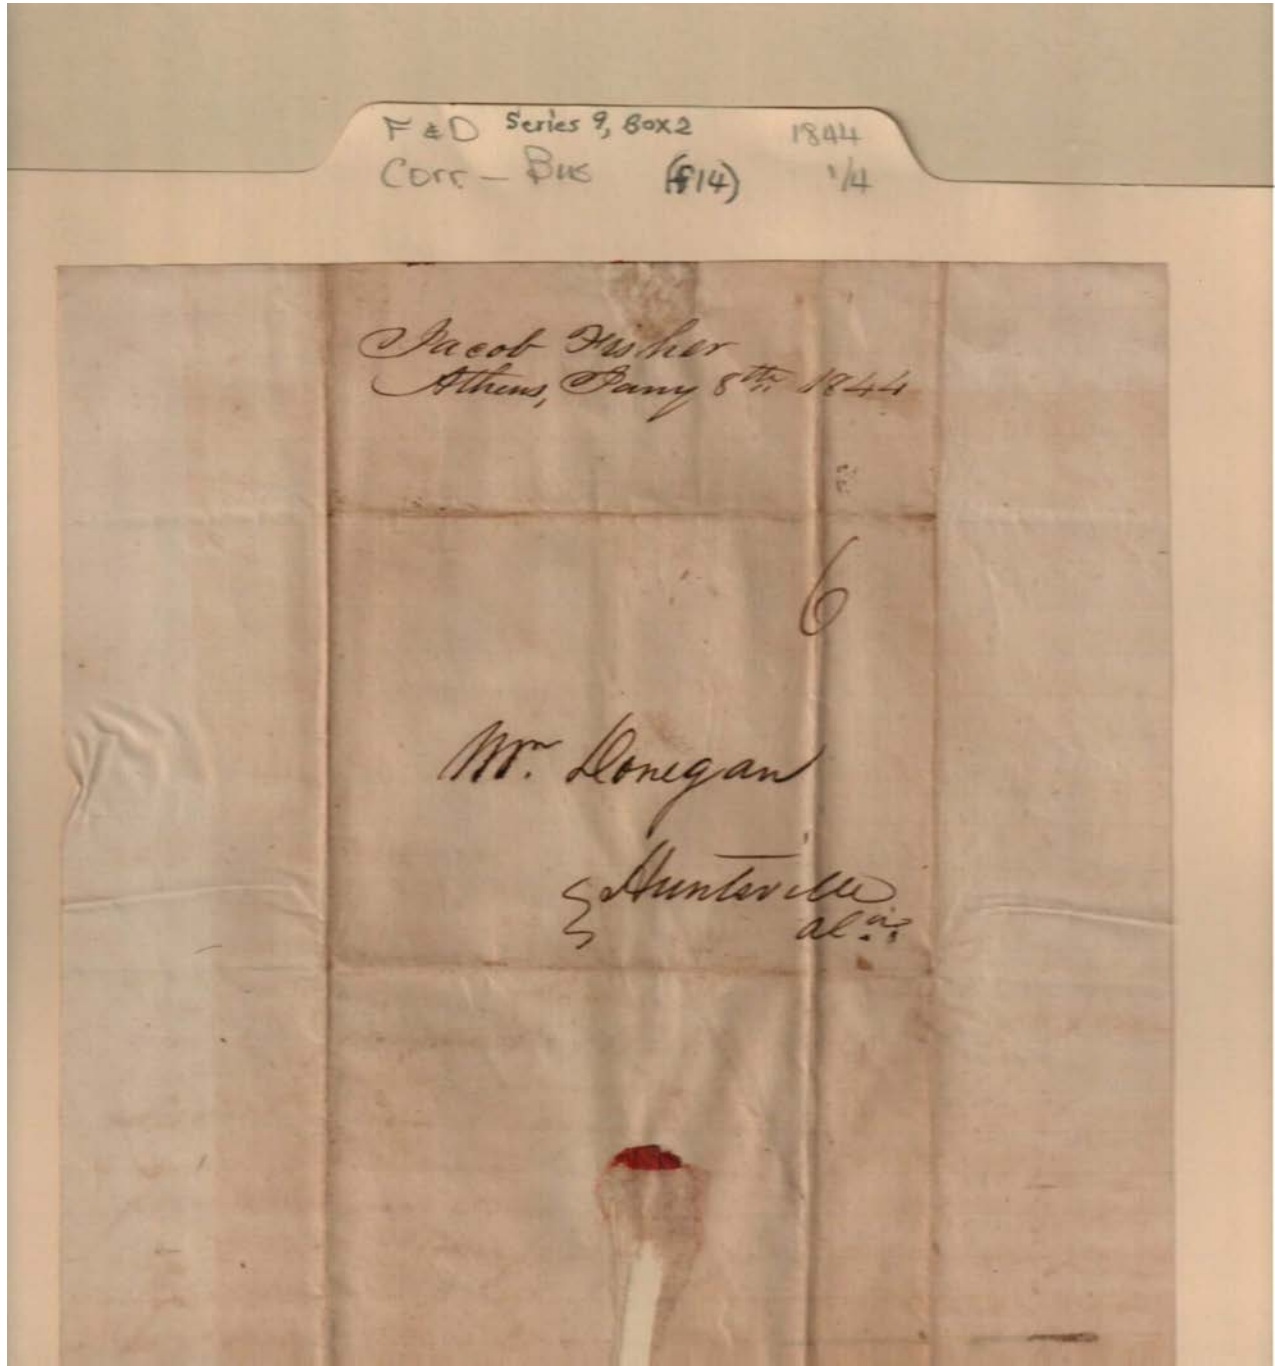 F & D Series 9, Box 2 1844
Corr - Bus (f14) 1/4
Jacob Fisher
Athens, Jany 8th 1844
6
Mr. Donegan
Huntsville
Ala.